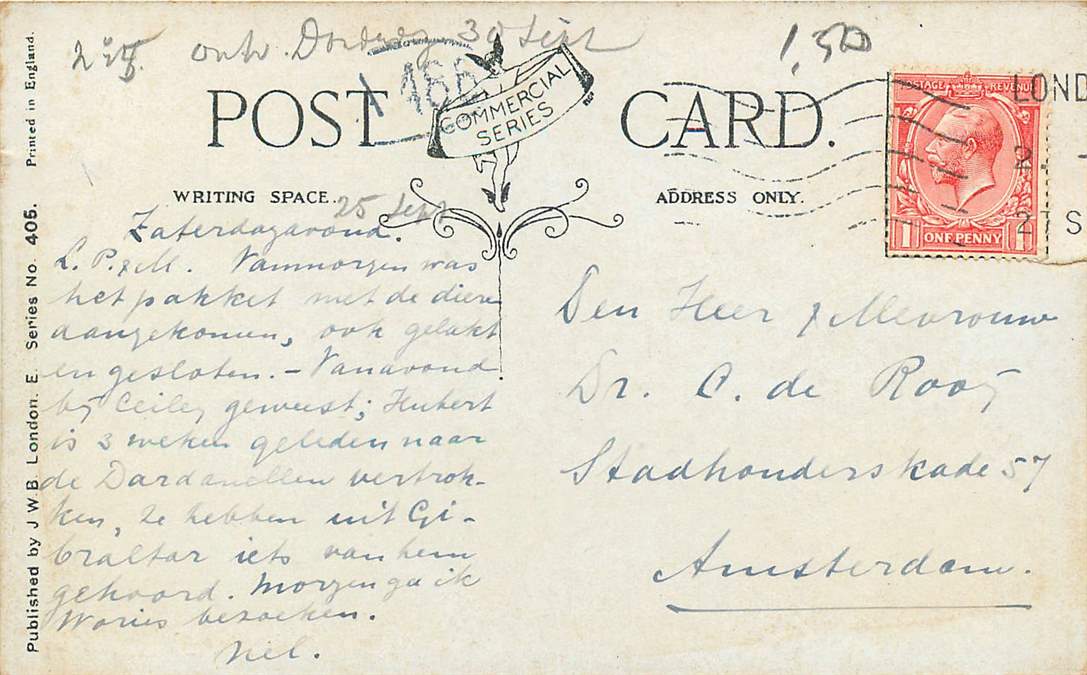 ontv. Donderdag 30 Sept
1,50
POST CARD.
COMMERCIAL
SERIES
WRITING SPACE.
ADDRESS ONLY.
25 Sept
Zaterdagavond.
L. P. & M. Vanmorgen was
het pakket met de dieren
aangekomen, ook gelakt
en gesloten. – Vanavond
bij Ceiley geweest; Hubert
is 3 weken geleden naar
de Dardanellen vertrok-
ken, ze hebben uit Gi-
braltar iets van hem
gehoord. Morgen ga ik
bezoeken.
Nel.
Den Heer & Mevrouw
Dr. C. de Rooy
Stadhouderskade 57
Amsterdam.
POSTAGE REVENUE
1 ONE PENNY 1
LOND
S
Published by J.W.B. London. E. Series No. 405. Printed in England.